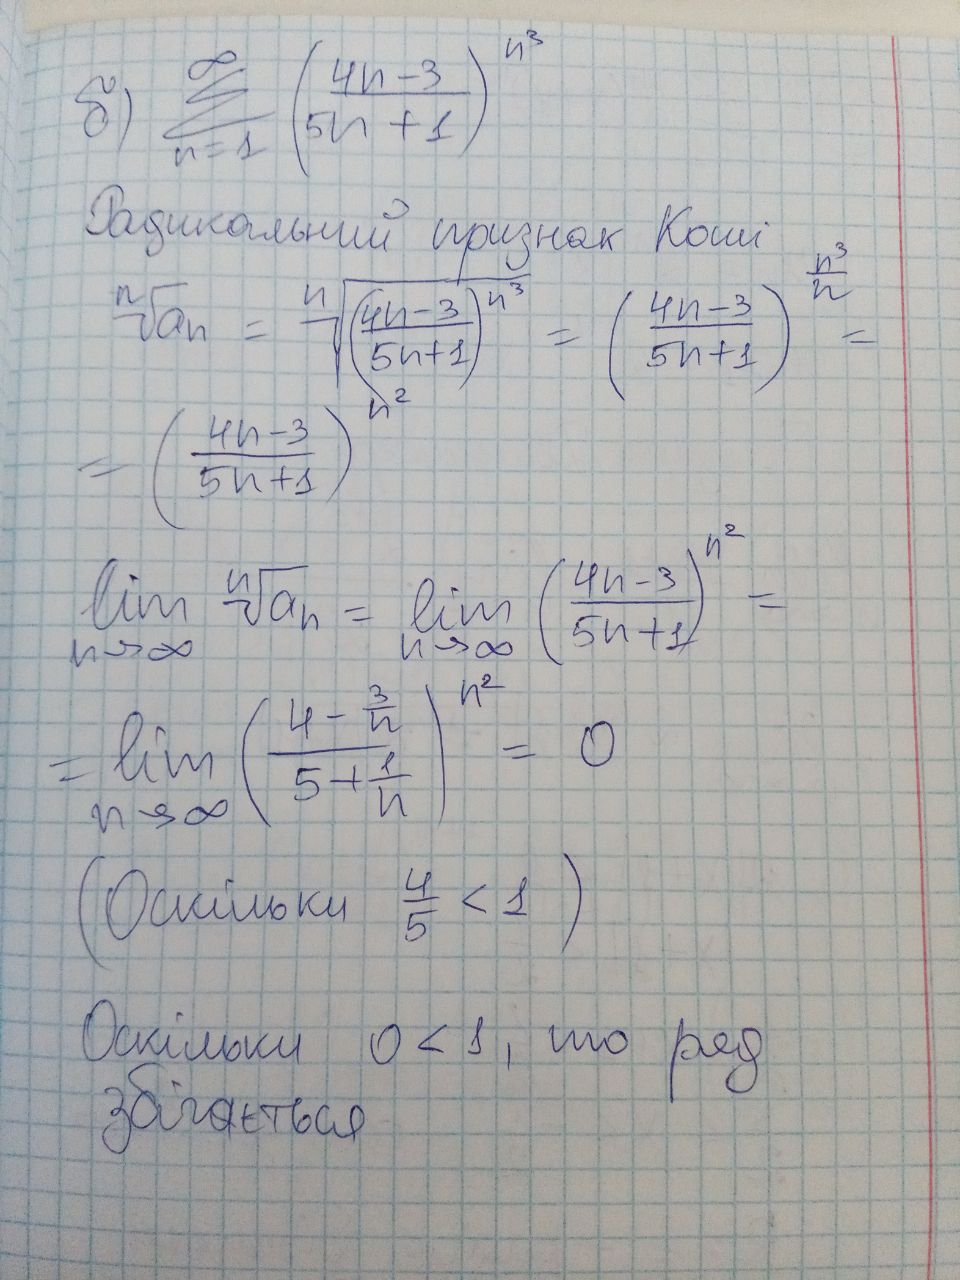 б) ∞ Σ n=1 (4n-3 / 5n+1)^n³
Радикальний признак Коші
ⁿ√aₙ = ⁿ√(4n-3 / 5n+1)^n³ = (4n-3 / 5n+1)^(n³/n) =
= (4n-3 / 5n+1)^n²
lim n→∞ ⁿ√aₙ = lim n→∞ (4n-3 / 5n+1)^n² =
= lim n→∞ (4 - 3/n / 5 + 1/n)^n² = 0
(Оскільки 4/5 < 1)
Оскільки 0 < 1, то ряд
збігається